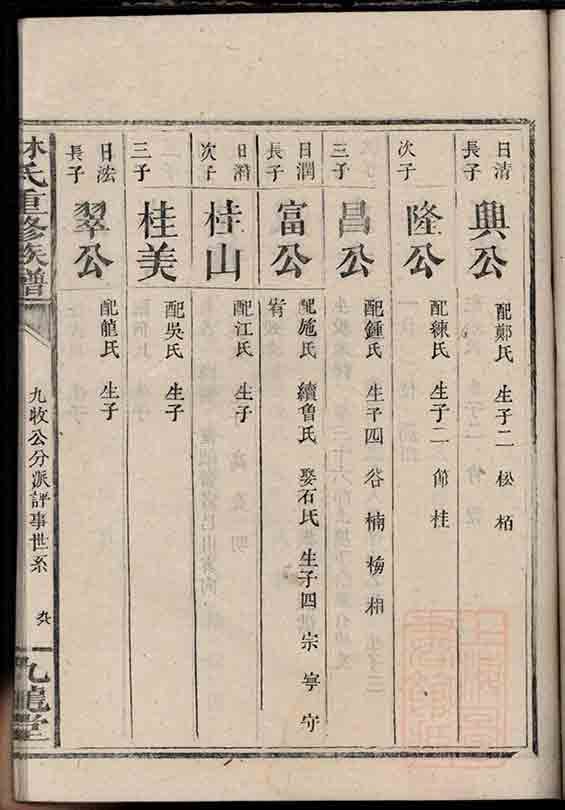 日清
長子
興公
配鄭氏 生子二 松 栢
次子
隆公
配練氏 生子二 節 桂
三子
昌公
配鍾氏 生子四 谷 楠 梅 相
日潤
長子
富公
配施氏 續魯氏 娶石氏 生子四 宗 寧 守
宥
日濟
次子
桂山
配江氏 生子
三子
桂美
配吳氏 生子
日浤
長子
翠公
配龍氏 生子
林氏重修族譜
九牧公分派評事世系
九龍堂